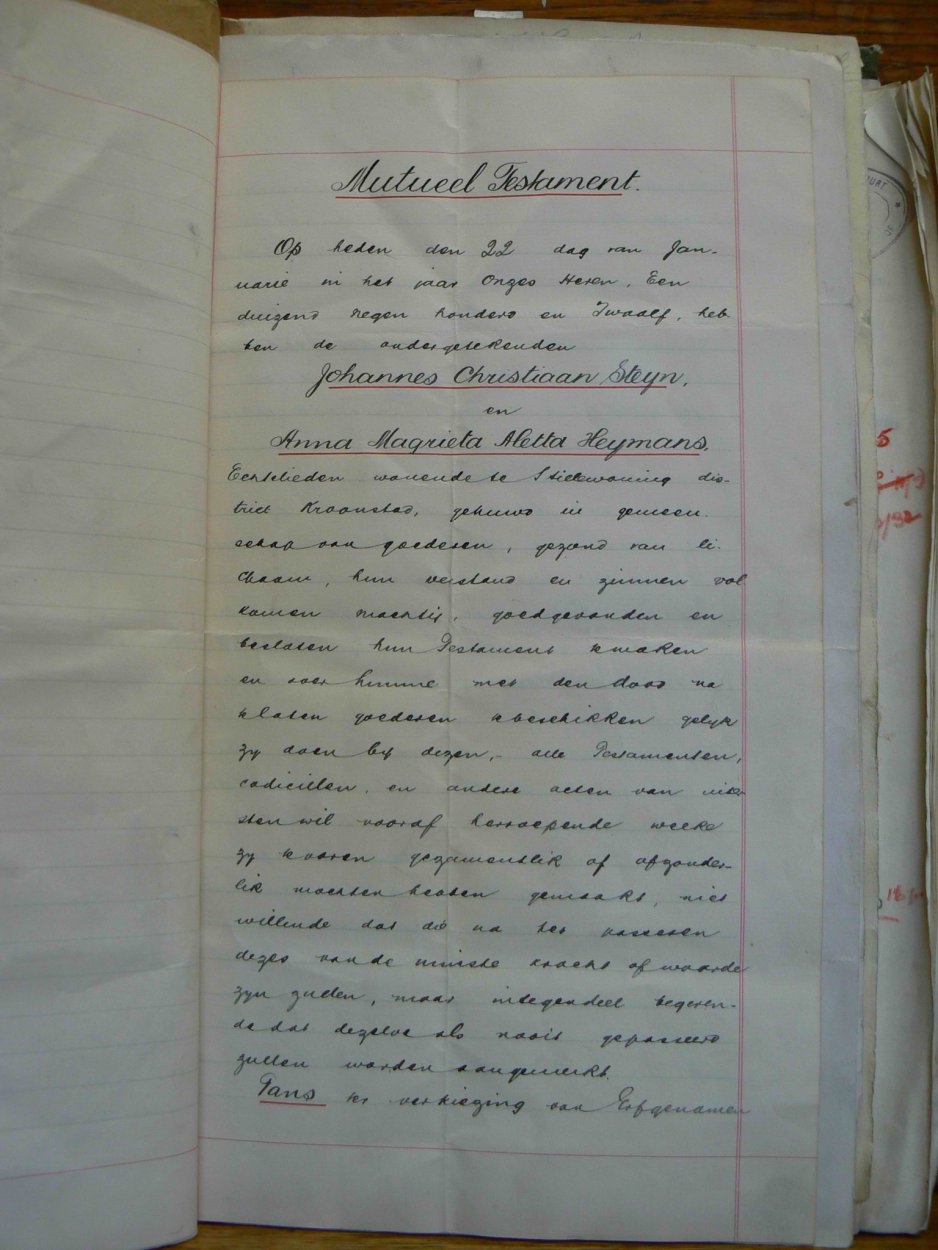 Mutueel Testament.
Op heden den 22 dag van Jan-
uarie in het jaar Onzes Heren, Een
duizend negen honderd en Twaalf, heb-
ben de ondergetekenden
Johannes Christiaan Steyn,
en
Anna Magrieta Aletta Heymans,
Echtelieden wonende te Stillewoning dis-
trict Kroonstad, gehuwd in gemeen-
schap van goederen, gezond van li-
chaam, hun verstand en zinnen vol
komen machtig, goedgevonden en
besloten hun Testament te maken
en over hunne met den dood na
te laten goederen te beschikken gelyk
zy doen by dezen,- alle Testamenten,
codicillen, en andere acten van uiter
sten wil vooraf herroepende welke
zy te voren gezamentlik of afzonder-
lik mochten hebben gemaakt, niet
willende dat die na het passeren
dezes van de minste kracht of waarde
zyn zullen, maar integendeel begeren-
de dat dezelve als nooit gepasseerd
zullen worden aangemerkt.
Tans ter verkiezing van Erfgenamen